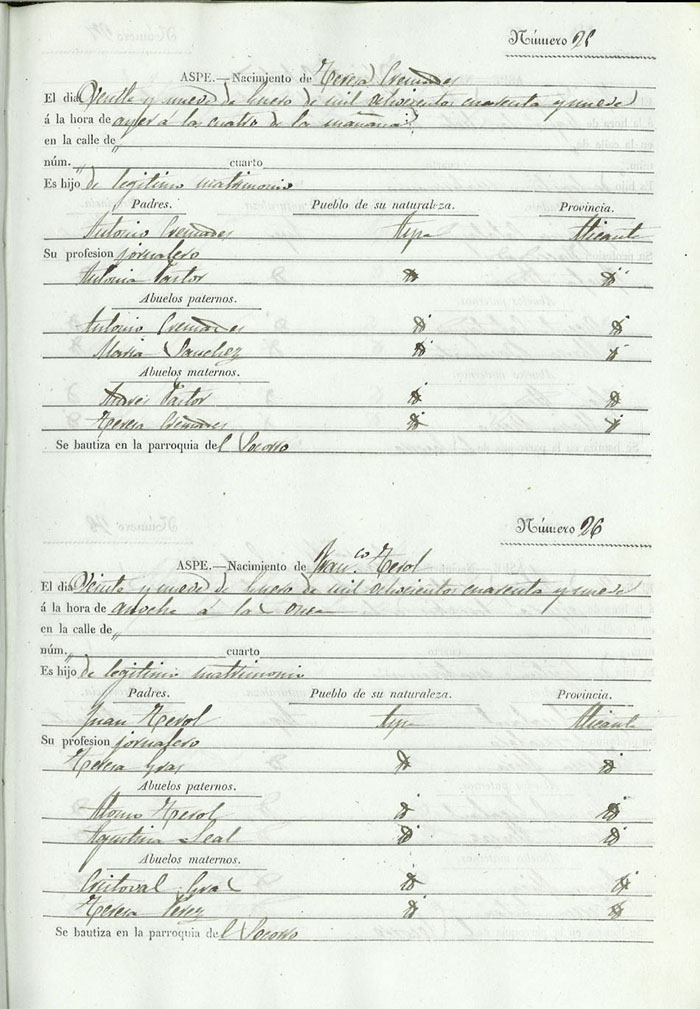 Número 25
ASPE.—Nacimiento de Teresa Cremades
El dia Veinte y nueve de Enero de mil ochocientos cuarenta y nueve
á la hora de ayer á la cuatro de la mañana
en la calle de „
núm. „ cuarto
Es hijo de legitimo matrimonio
Padres. Pueblo de su naturaleza. Provincia.
Antonio Cremades Aspe Alicante
Su profesion jornalero
Antonia Pastor id id
Abuelos paternos.
Antonio Cremades id id
Maria Sanchez id id
Abuelos maternos.
Andrés Pastor id id
Teresa Cremades id id
Se bautiza en la parroquia del Socorro
Número 26
ASPE.—Nacimiento de Fran.co Terol
El dia Veinte y nueve de Enero de mil ochocientos cuarenta y nueve
á la hora de anoche á la once
en la calle de „
núm. „ cuarto
Es hijo de legitimo matrimonio
Padres. Pueblo de su naturaleza. Provincia.
Juan Terol Aspe Alicante
Su profesion jornalero
Teresa Gras id id
Abuelos paternos.
Alonso Terol id id
Agustina Leal id id
Abuelos maternos.
Cristoval Gras id id
Teresa Perez id id
Se bautiza en la parroquia del Socorro